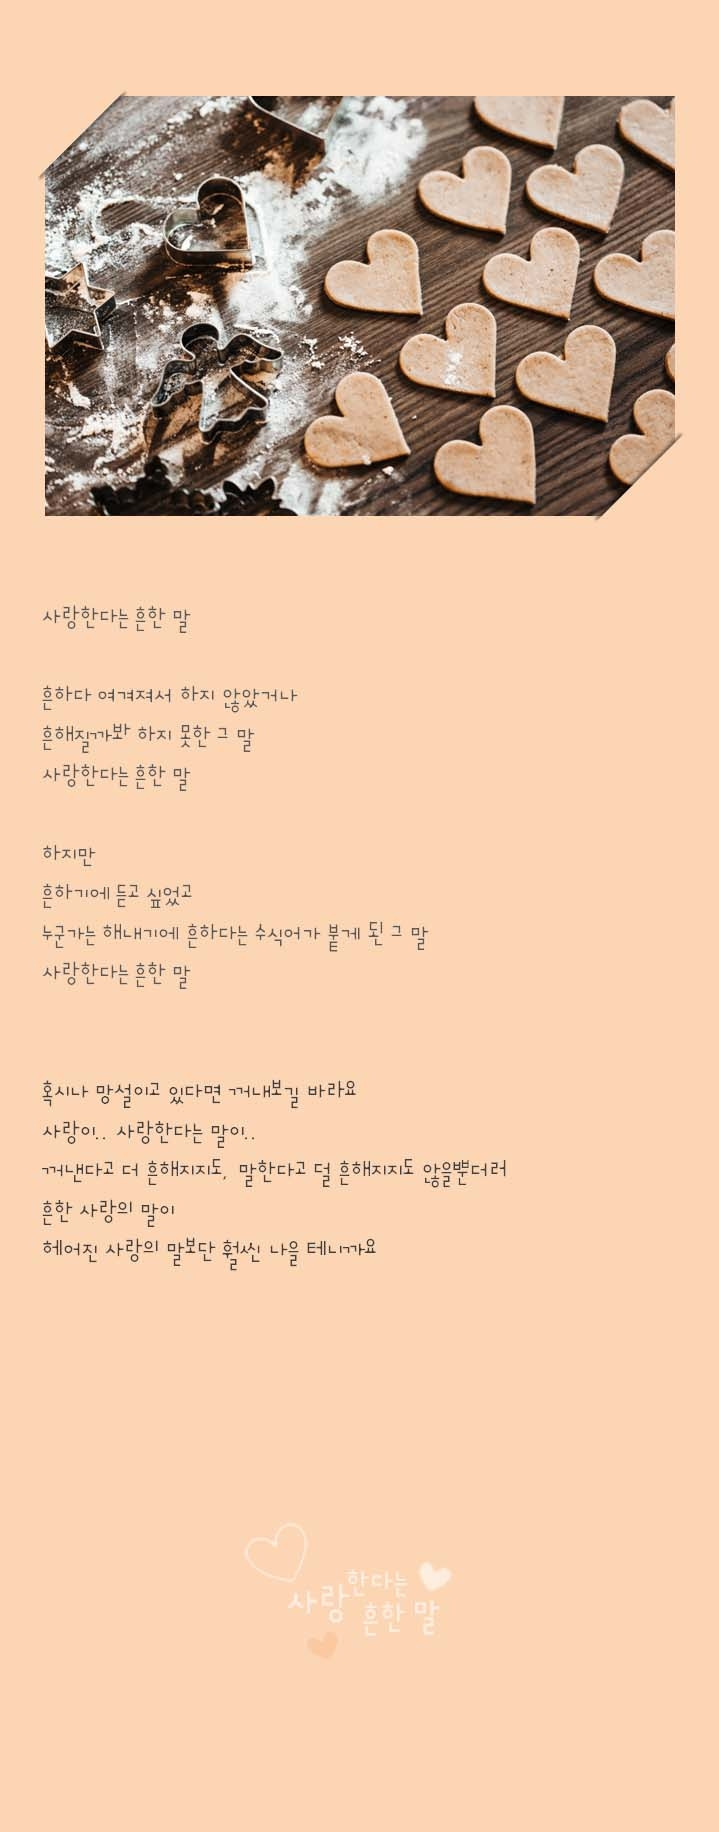 사랑한다는 흔한 말
흔하다 여겨져서 하지 않았거나
흔해질까봐 하지 못한 그 말
사랑한다는 흔한 말
하지만
흔하기에 듣고 싶었고
누군가는 해내기에 흔하다는 수식어가 붙게 된 그 말
사랑한다는 흔한 말
혹시나 망설이고 있다면 꺼내보길 바라요
사랑이.. 사랑한다는 말이..
꺼낸다고 더 흔해지지도, 말한다고 덜 흔해지지도 않을뿐더러
흔한 사랑의 말이
헤어진 사랑의 말보단 훨씬 나을 테니까요
사랑한다는
흔한 말